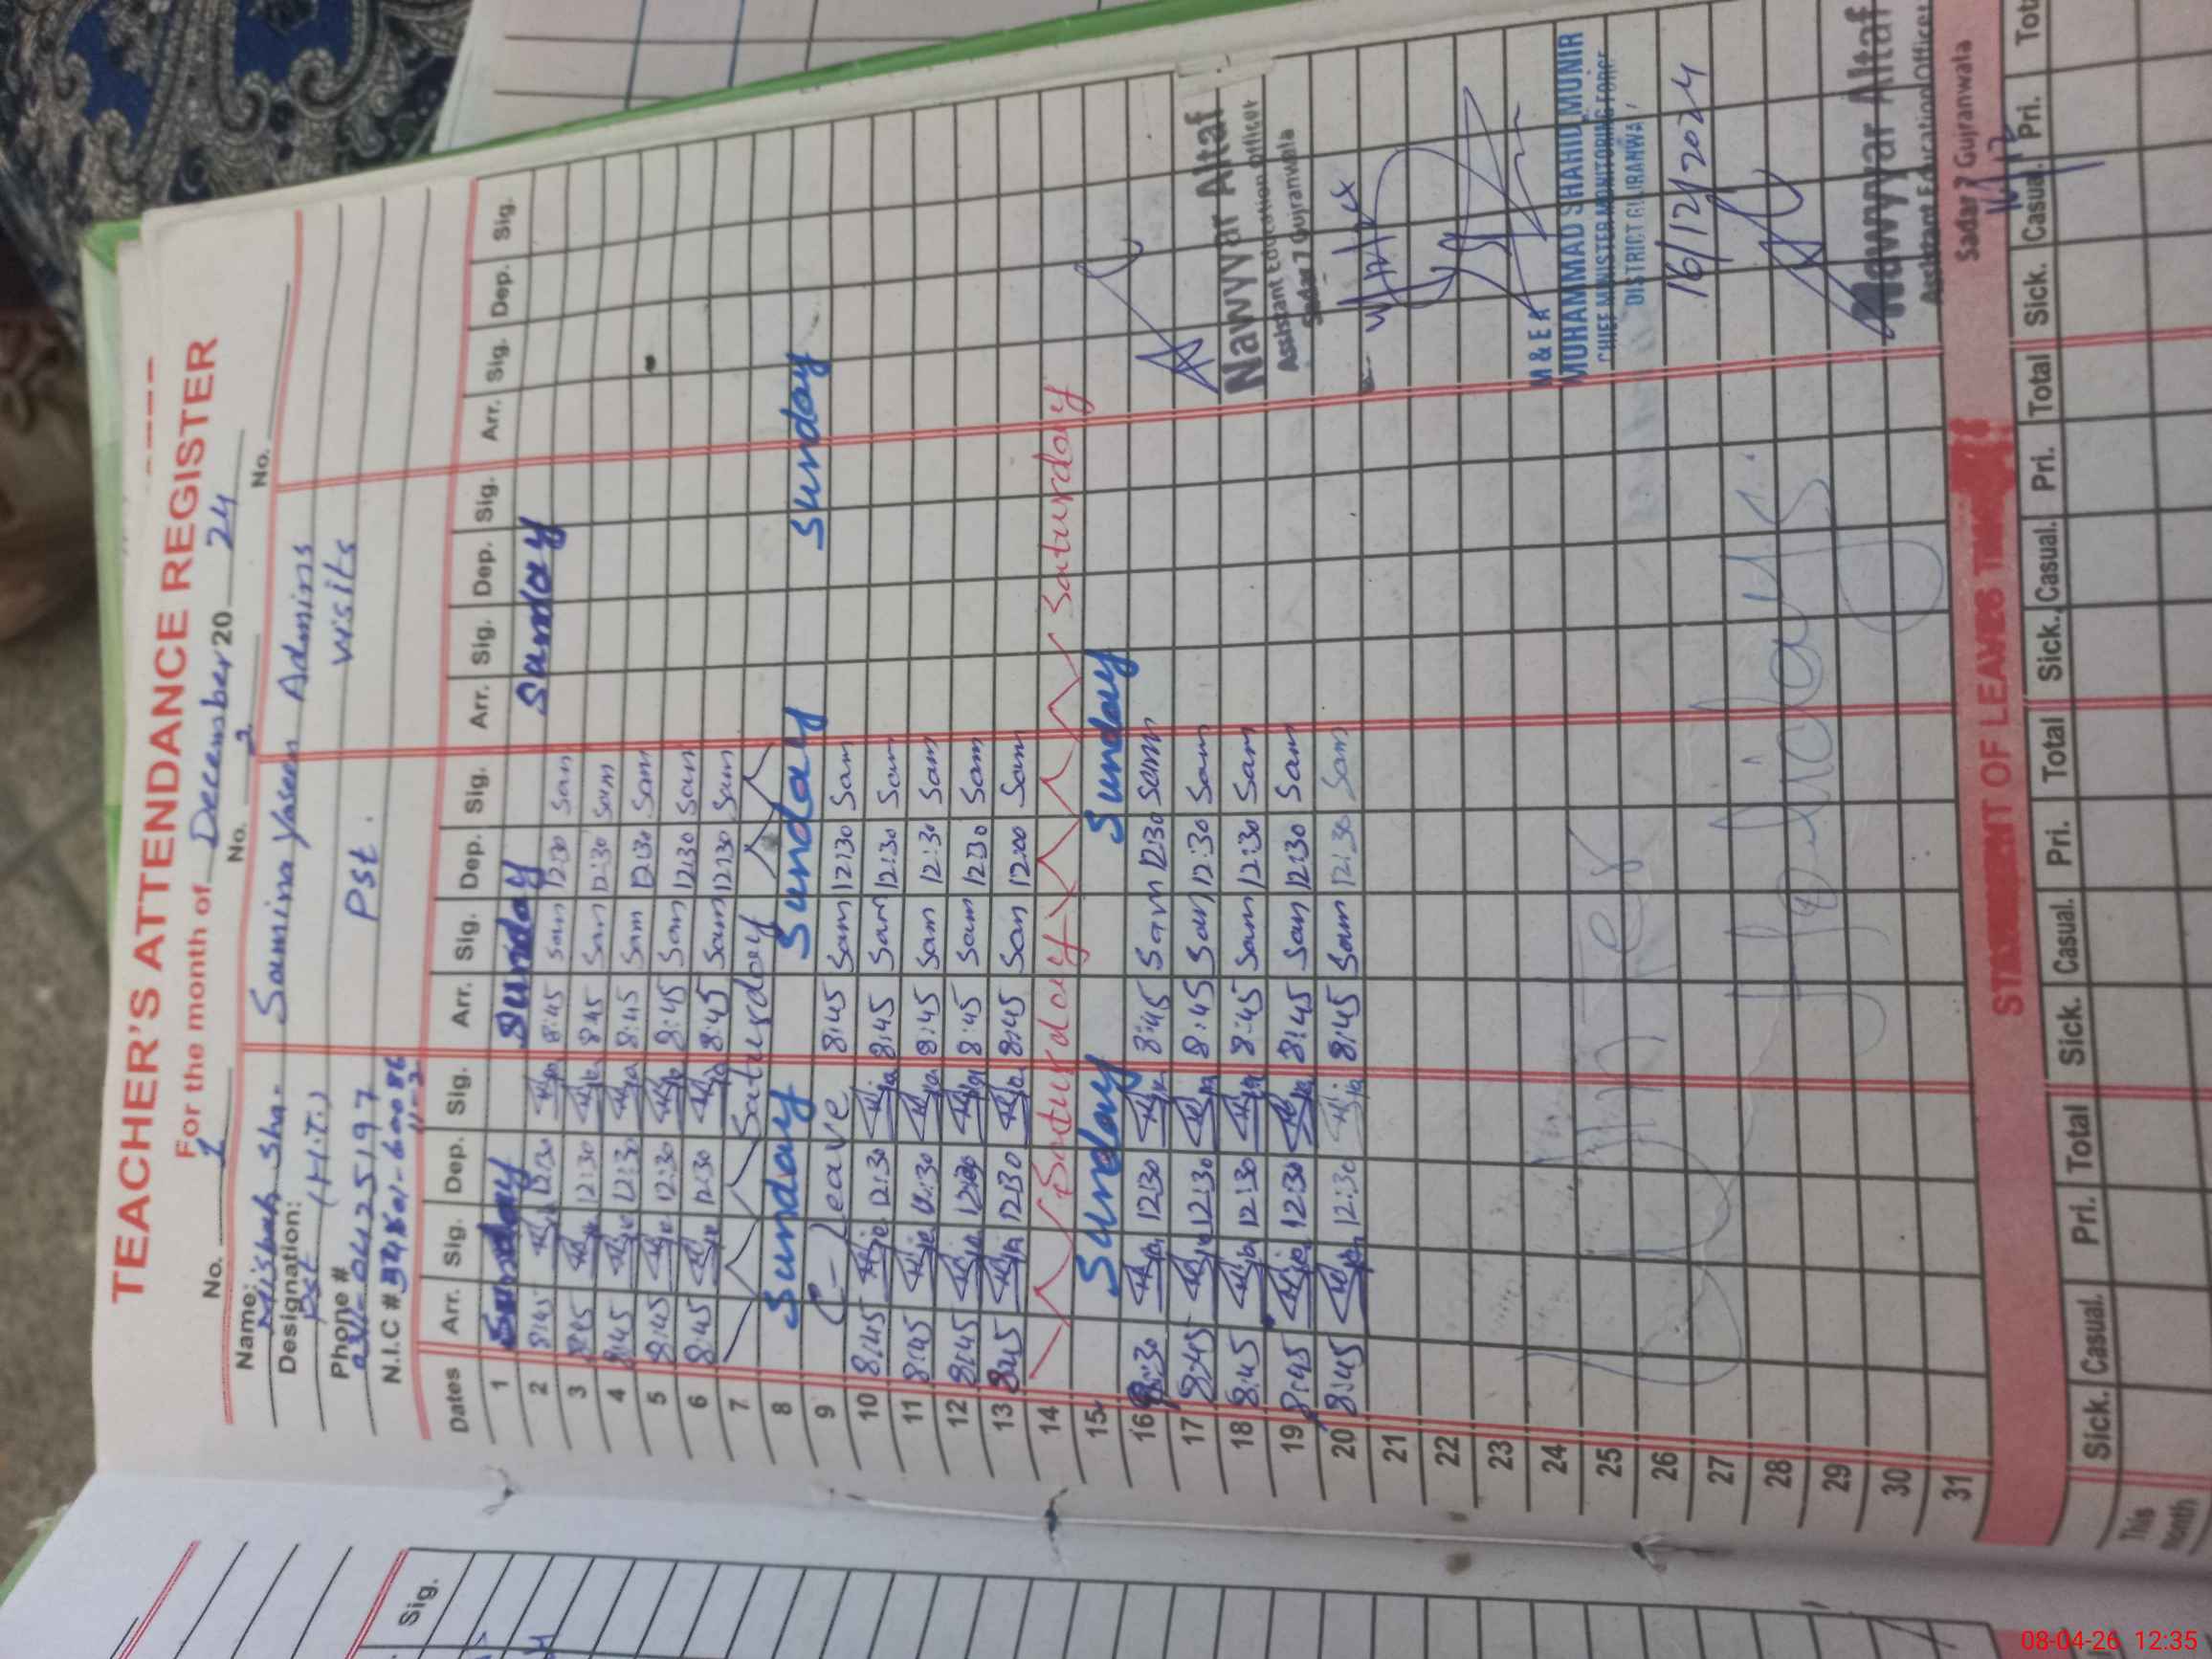 TEACHER'S ATTENDANCE REGISTER
For the month of December 20 24
No. 1 No. 2 No.
Name: Misbah Sha- Samina Yasen Admins
Designation: Pst (H.T.) Pst. visits
Phone #
N.I.C #
Dates Arr. Sig. Dep. Sig. Arr. Sig. Dep. Sig. Arr. Sig. Dep. Sig. Arr. Sig. Dep. Sig.
1 Sunday Sunday Sunday
2 8:45 12:30 8:45 Sam 12:30 Sam
3 8:45 12:30 8:45 Sam 12:30 Sam
4 8:45 12:30 8:45 Sam 12:30 Sam
5 8:45 12:30 8:45 Sam 12:30 Sam
6 8:45 12:30 8:45 Sam 12:30 Sam
7 Saturday
8 Sunday Sunday Sunday
9 (-) Leave 8:45 Sam 12:30 Sam
10 8:45 12:30 8:45 Sam 12:30 Sam
11 8:45 12:30 8:45 Sam 12:30 Sam
12 8:45 8:45 Sam 12:30 Sam
13 8:45 12:30 8:45 Sam 12:00 Sam
14 Saturday Saturday
15 Sunday Sunday
16 8:30 12:30 8:45 Sam 12:30 Sam
17 8:45 12:30 8:45 Sam 12:30 Sam
18 8:45 12:30 8:45 Sam 12:30 Sam
19 8:45 12:30 8:45 Sam 12:30 Sam
20 8:45 12:30 8:45 Sam 12:30 Sam
21
22
23
24
25
26
27
28
29
30
31
Nawyyar Altaf
Assistant Education Officer
Sadar 7 Gujranwala
M & E A
MUHAMMAD SHAHID MUNIR
CHIEF MINISTER MONITORING FORCE
DISTRICT GUJRANWALA
16/12/2024
Nawyyar Altaf
Assistant Education Officer
Sadar 7 Gujranwala
Winter
Holidays.
STATEMENT OF LEAVES
Sick. Casual. Pri. Total Sick. Casual. Pri. Total Sick. Casual. Pri. Total Sick. Casual. Pri. Tot
This
month
Sig.
08-04-26 12:35